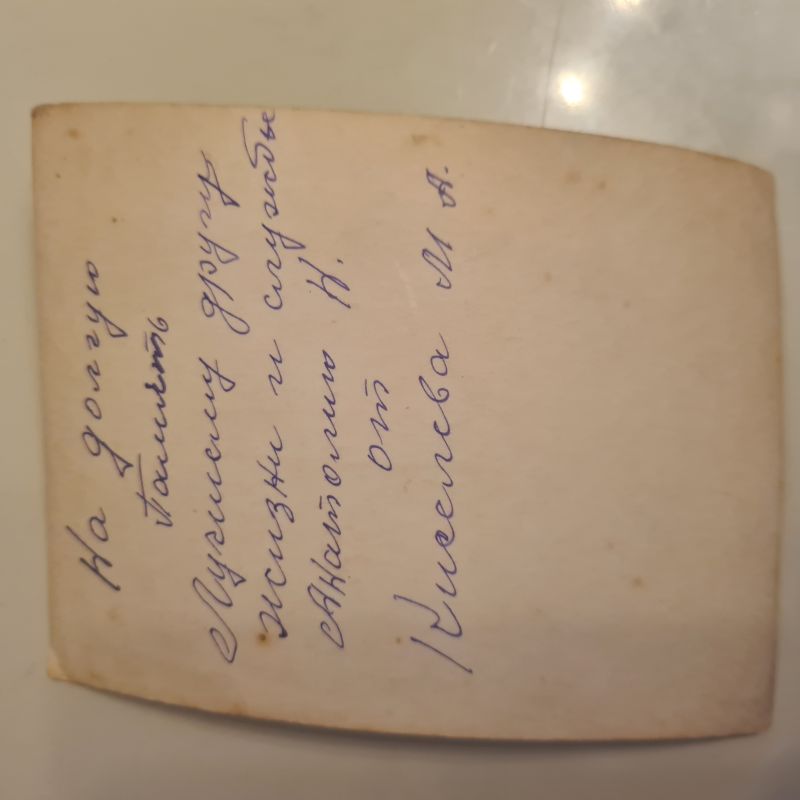 На долгую
память
Лучшему другу
жизни и службы
Анатолию К.
от
Киселева М А.